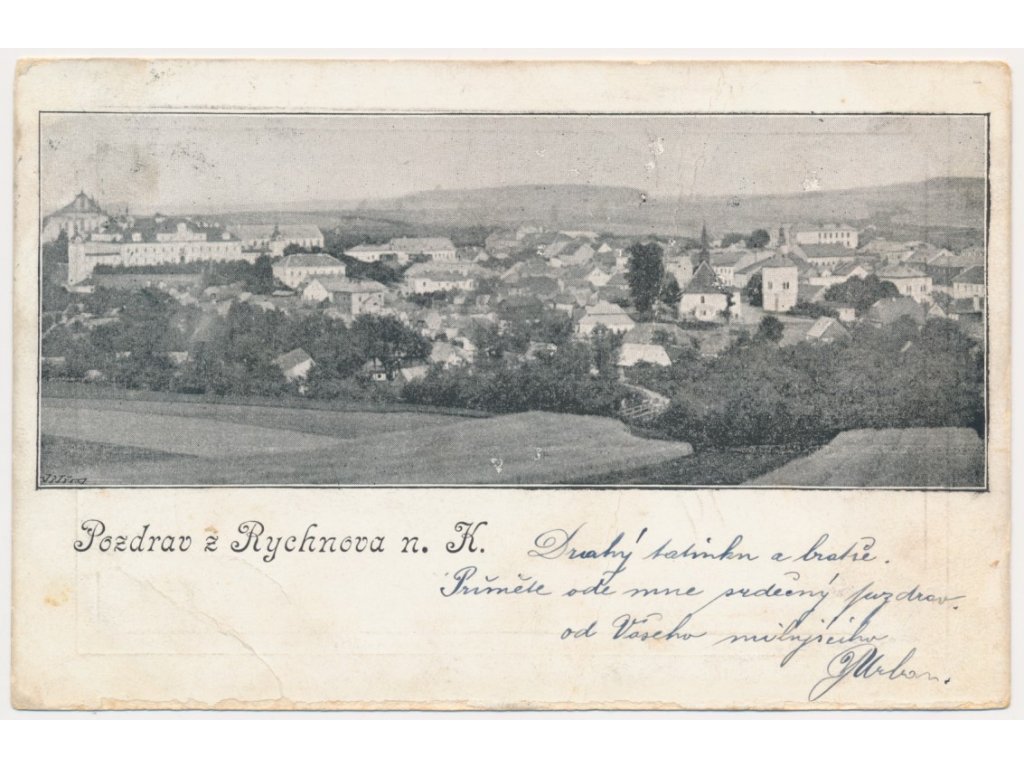 Pozdrav z Rychnova n. K.
Drahý tatínku a bratře.
Přiměte ode mne srdečný pozdrav.
od Vašeho milujícího
JUrban.